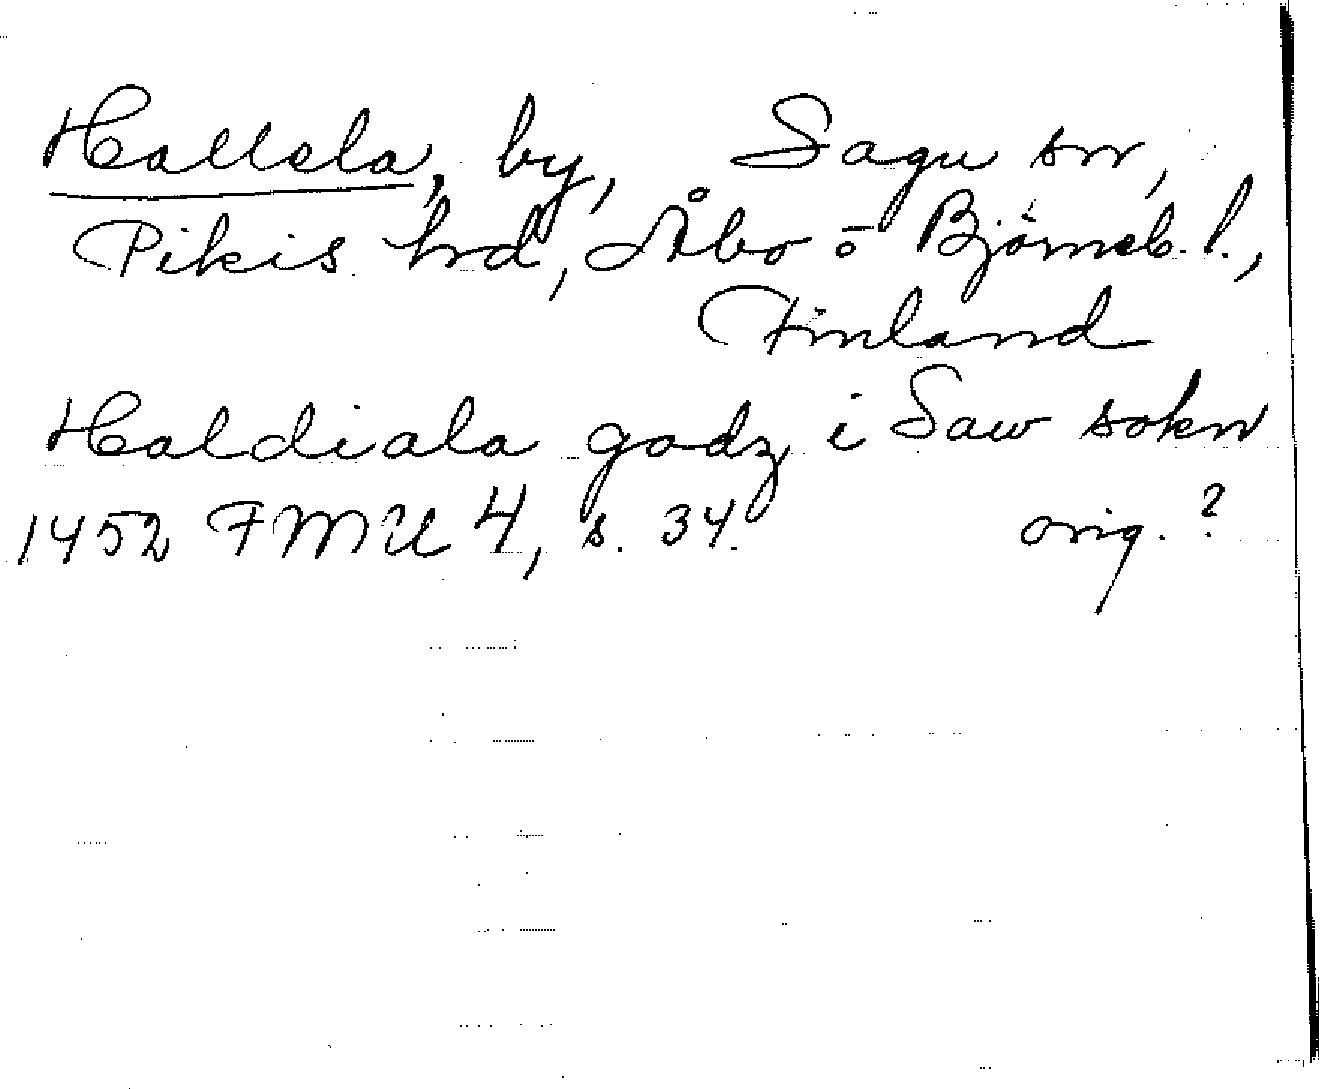 Hallela, by, Sagu sn,
Pikis hrd, Åbo o Björneb. l.,
Finland
Haldiala godz i Saw sokn
1452 FMU 4, s. 34. orig. ?